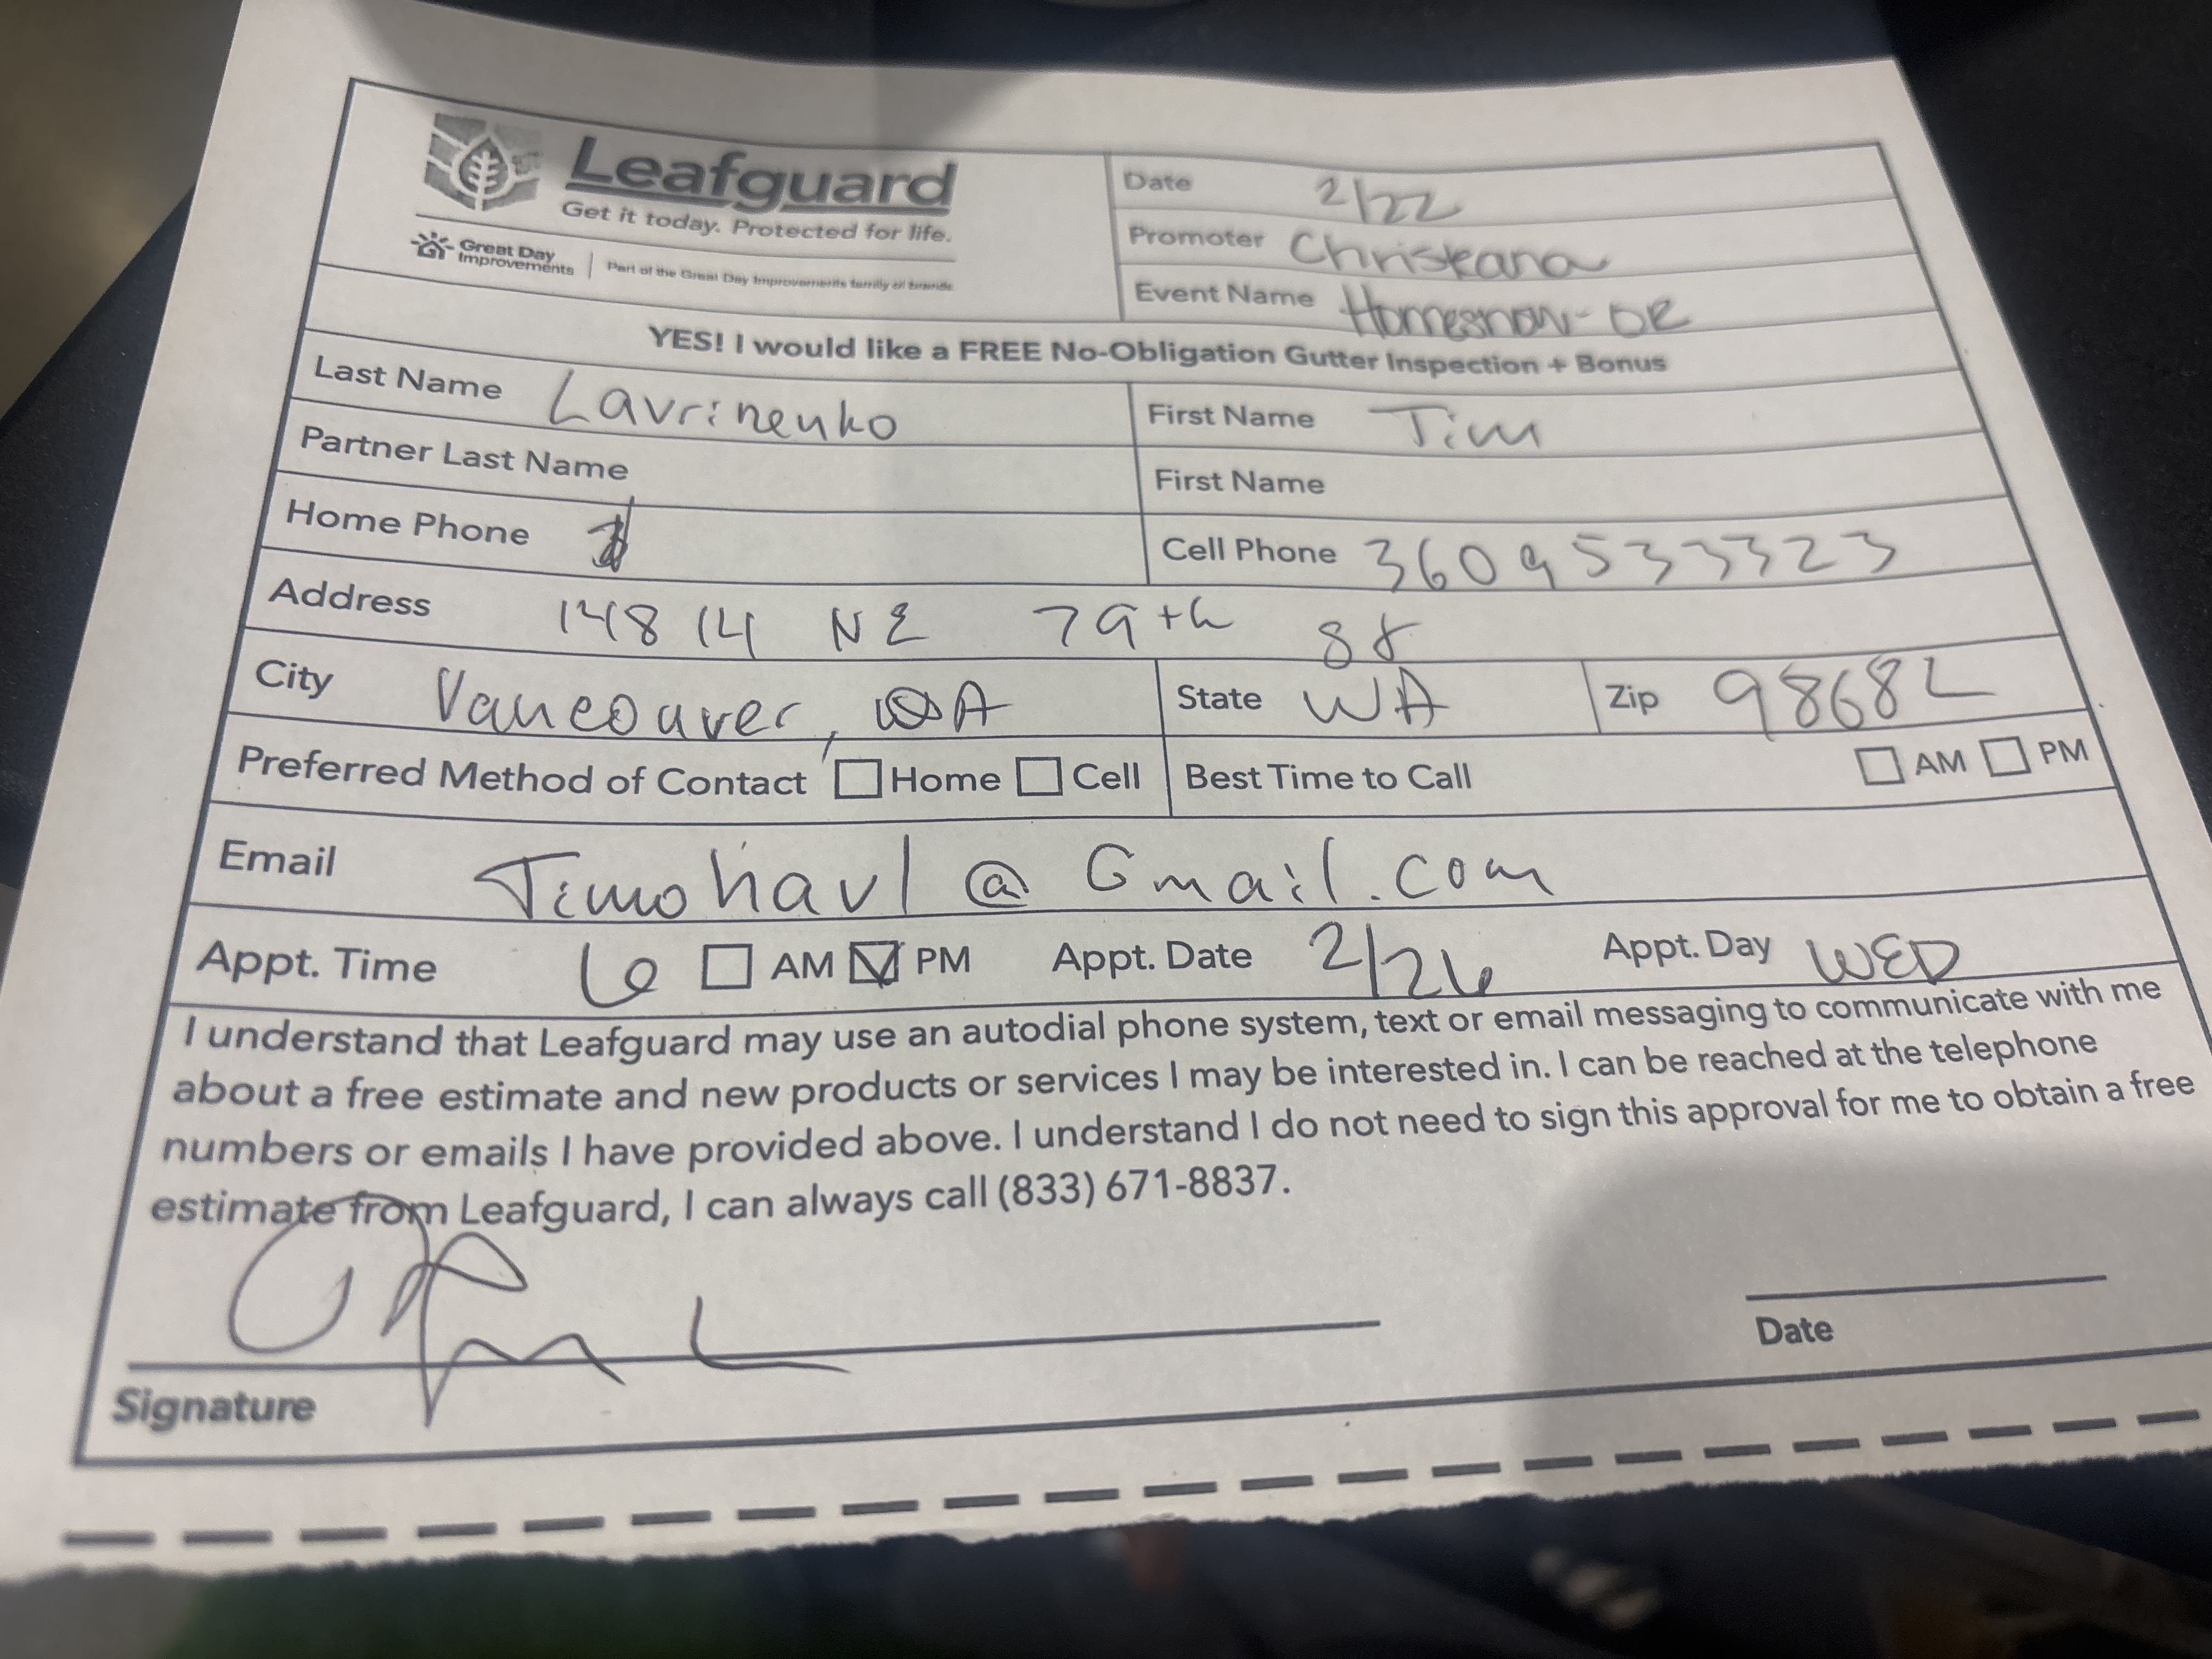 Leafguard
Get it today. Protected for life.
Great Day Improvements | Part of the Great Day Improvements family of brands
Date 2/22
Promoter Chriskeana
Event Name Homeshow-be
YES! I would like a FREE No-Obligation Gutter Inspection + Bonus
Last Name Lavrinenko First Name Tim
Partner Last Name First Name
Home Phone Cell Phone 360 953 3323
Address 14814 NE 79th
City Vancouver, WA State WA Zip 98682
Preferred Method of Contact ☐ Home ☐ Cell Best Time to Call ☐ AM ☐ PM
Email Timohavl@Gmail.com
Appt. Time 6 ☐ AM ☑ PM Appt. Date 2/26 Appt. Day WED
I understand that Leafguard may use an autodial phone system, text or email messaging to communicate with me
about a free estimate and new products or services I may be interested in. I can be reached at the telephone
numbers or emails I have provided above. I understand I do not need to sign this approval for me to obtain a free
estimate from Leafguard, I can always call (833) 671-8837.
Signature Date